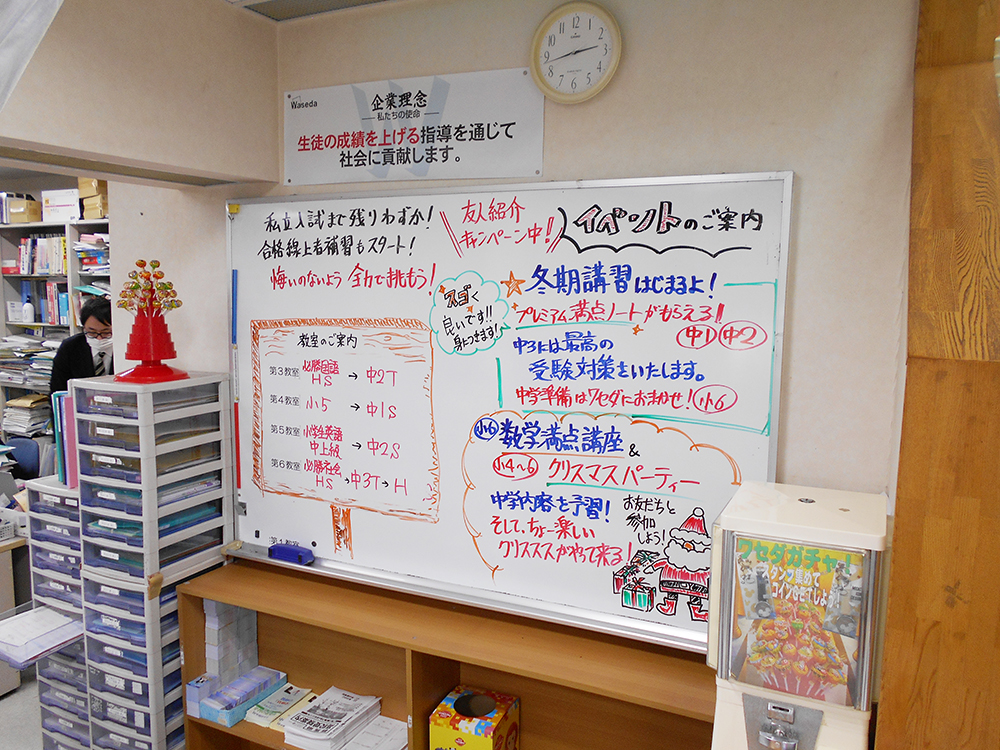 Waseda
企業理念
私たちの使命
生徒の成績を上げる指導を通じて
社会に貢献します。
私立入試まで残りわずか!
合格線上者補習もスタート!
悔いのないよう全力で挑もう!
友人紹介
キャンペーン中!
イベントのご案内
スゴく
良いです!!
身につきます!
冬期講習はじまるよ!
プレミアム満点ノートがもらえる!
中1 中2
中3には最高の
受験対策をいたします。
中学準備はワセダにおまかせ! 小6
教室のご案内
第3教室 必勝国語 HS → 中2T
第4教室 小5 → 中1S
第5教室 小学生英語 中上級 → 中2S
第6教室 必勝社会 HS → 中3T → H
第1教室
小6 数学満点講座
&
小4~6 クリスマスパーティー
中学内容を予習!
そして、ちょー楽しい
クリスマスがやって来る!
お友だちと
参加
しよう!
ワセダガチャ!
スタンプ集めて